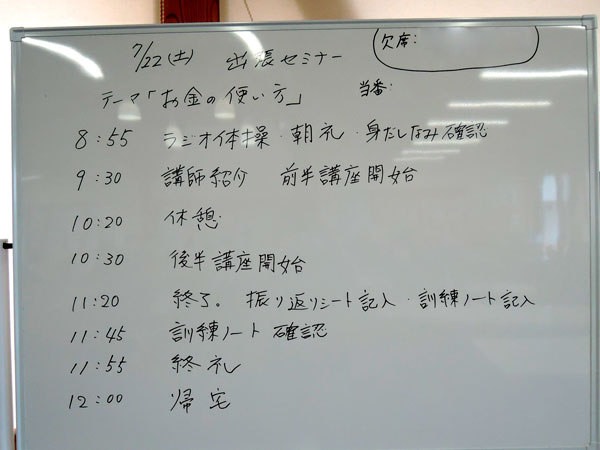 7/22(土) 出張セミナー
欠席:
テーマ「お金の使い方」
当番·
8:55 ラジオ体操·朝礼·身だしなみ確認
9:30 講師紹介 前半講座開始
10:20 休憩
10:30 後半講座開始
11:20 終了。振り返りシート記入·訓練ノート記入
11:45 訓練ノート確認
11:55 終礼
12:00 帰宅